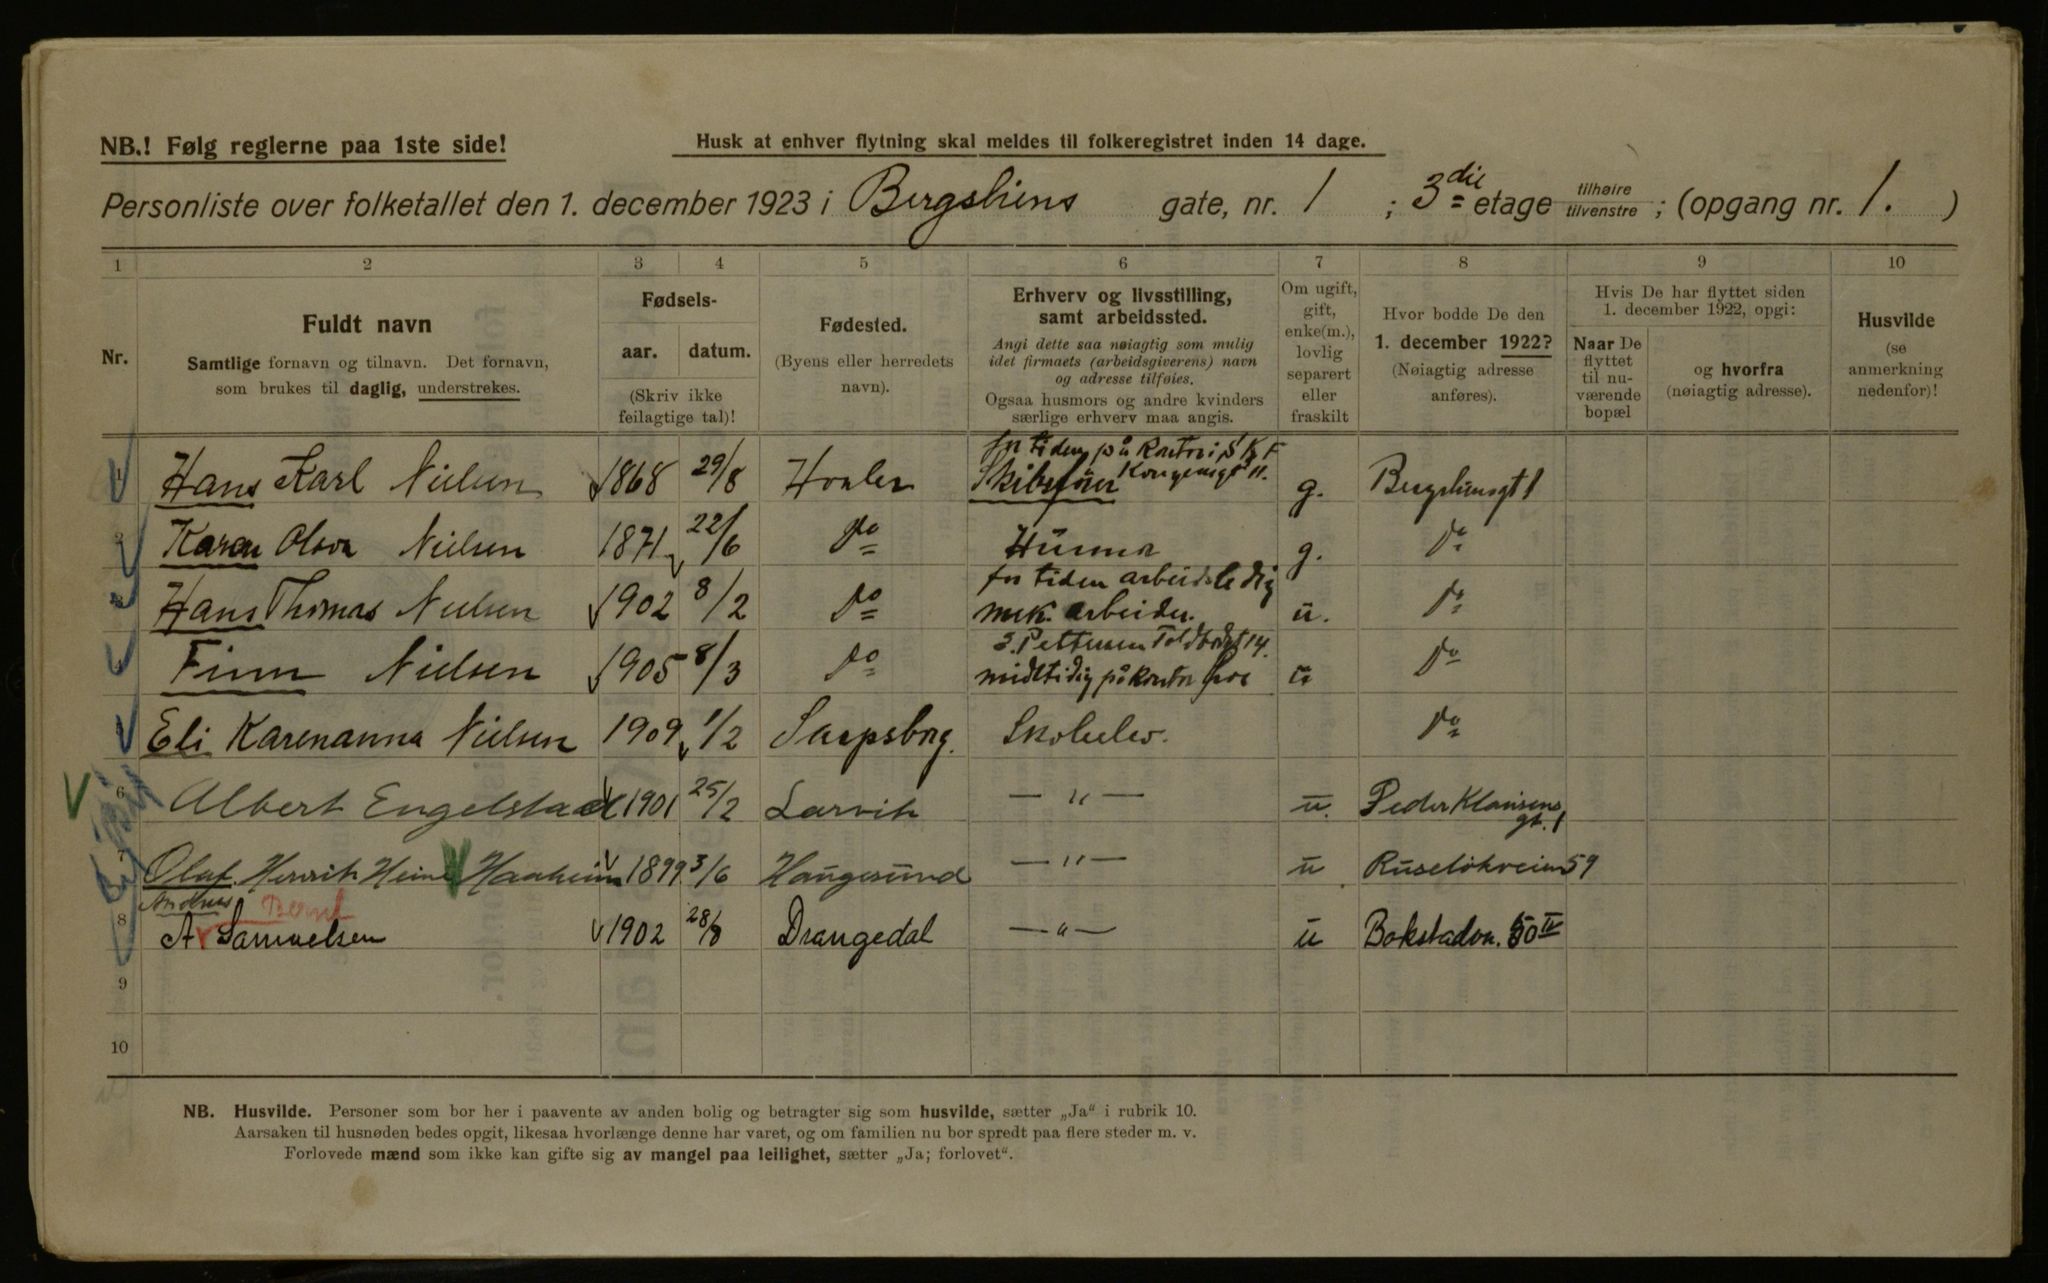 NB.! Følg reglerne paa 1ste side!
Husk at enhver flytning skal meldes til folkeregistret inden 14 dage.
Personliste over folketallet den 1. december 1923 i Bergsliens gate, nr. 1 ; 3die etage tilhøire tilvenstre ; (opgang nr. 1. )
1 2 3 4 5 6 7 8 9 10
Nr.
Fuldt navn
Samtlige fornavn og tilnavn. Det fornavn,
som brukes til daglig, understrekes.
Fødsels-
aar. datum.
(Skriv ikke
feilagtige tal)!
Fødested.
(Byens eller herredets
navn).
Erhverv og livsstilling,
samt arbeidssted.
Angi dette saa nøiagtig som mulig
idet firmaets (arbeidsgiverens) navn
og adresse tilføies.
Ogsaa husmors og andre kvinders
særlige erhverv maa angis.
Om ugift,
gift,
enke(m.),
lovlig
separert
eller
fraskilt
Hvor bodde De den
1. december 1922?
(Nøiagtig adresse
anføres).
Hvis De har flyttet siden
1. december 1922, opgi:
Naar De
flyttet
til nu-
værende
bopæl
og hvorfra
(nøiagtig adresse).
Husvilde
(se
anmerkning
nedenfor)!
for tiden på kontor i S K F
1 Hans Karl Nielsen 1868 29/8 Hvaler Skibsfører Kongensgt 11. g. Bergsliensgt 1
2 Karen Olava Nielsen 1871 22/6 do Húsmor g. do
for tiden arbeidsledig
3 Hans Thomas Nielsen 1902 8/2 do mek. arbeider. u. do
S. Pettersen Toldbodgt 14.
4 Finn Nielsen 1905 8/3 do midltidig på kontor hos u do
Eli Karenanna Nielsen 1909 1/2 Sarpsborg. Skoleelev. do
6 Albert Engelstad 1901 25/2 Larvik — " — u. Peder Klausens
gt. 1
7 Olaf Henrik Heine Haaheim 1899 3/6 Haugesund — " — u Ruseløkveien 59
Andreas Bernt
8 A Samuelsen 1902 28/8 Drangedal — " — u Bokstadvn. 50 IV
9
10
NB. Husvilde. Personer som bor her i paavente av anden bolig og betragter sig som husvilde, sætter „Ja“ i rubrik 10.
Aarsaken til husnøden bedes opgit, likesaa hvorlænge denne har varet, og om familien nu bor spredt paa flere steder m. v.
Forlovede mænd som ikke kan gifte sig av mangel paa leilighet, sætter „Ja; forlovet“.